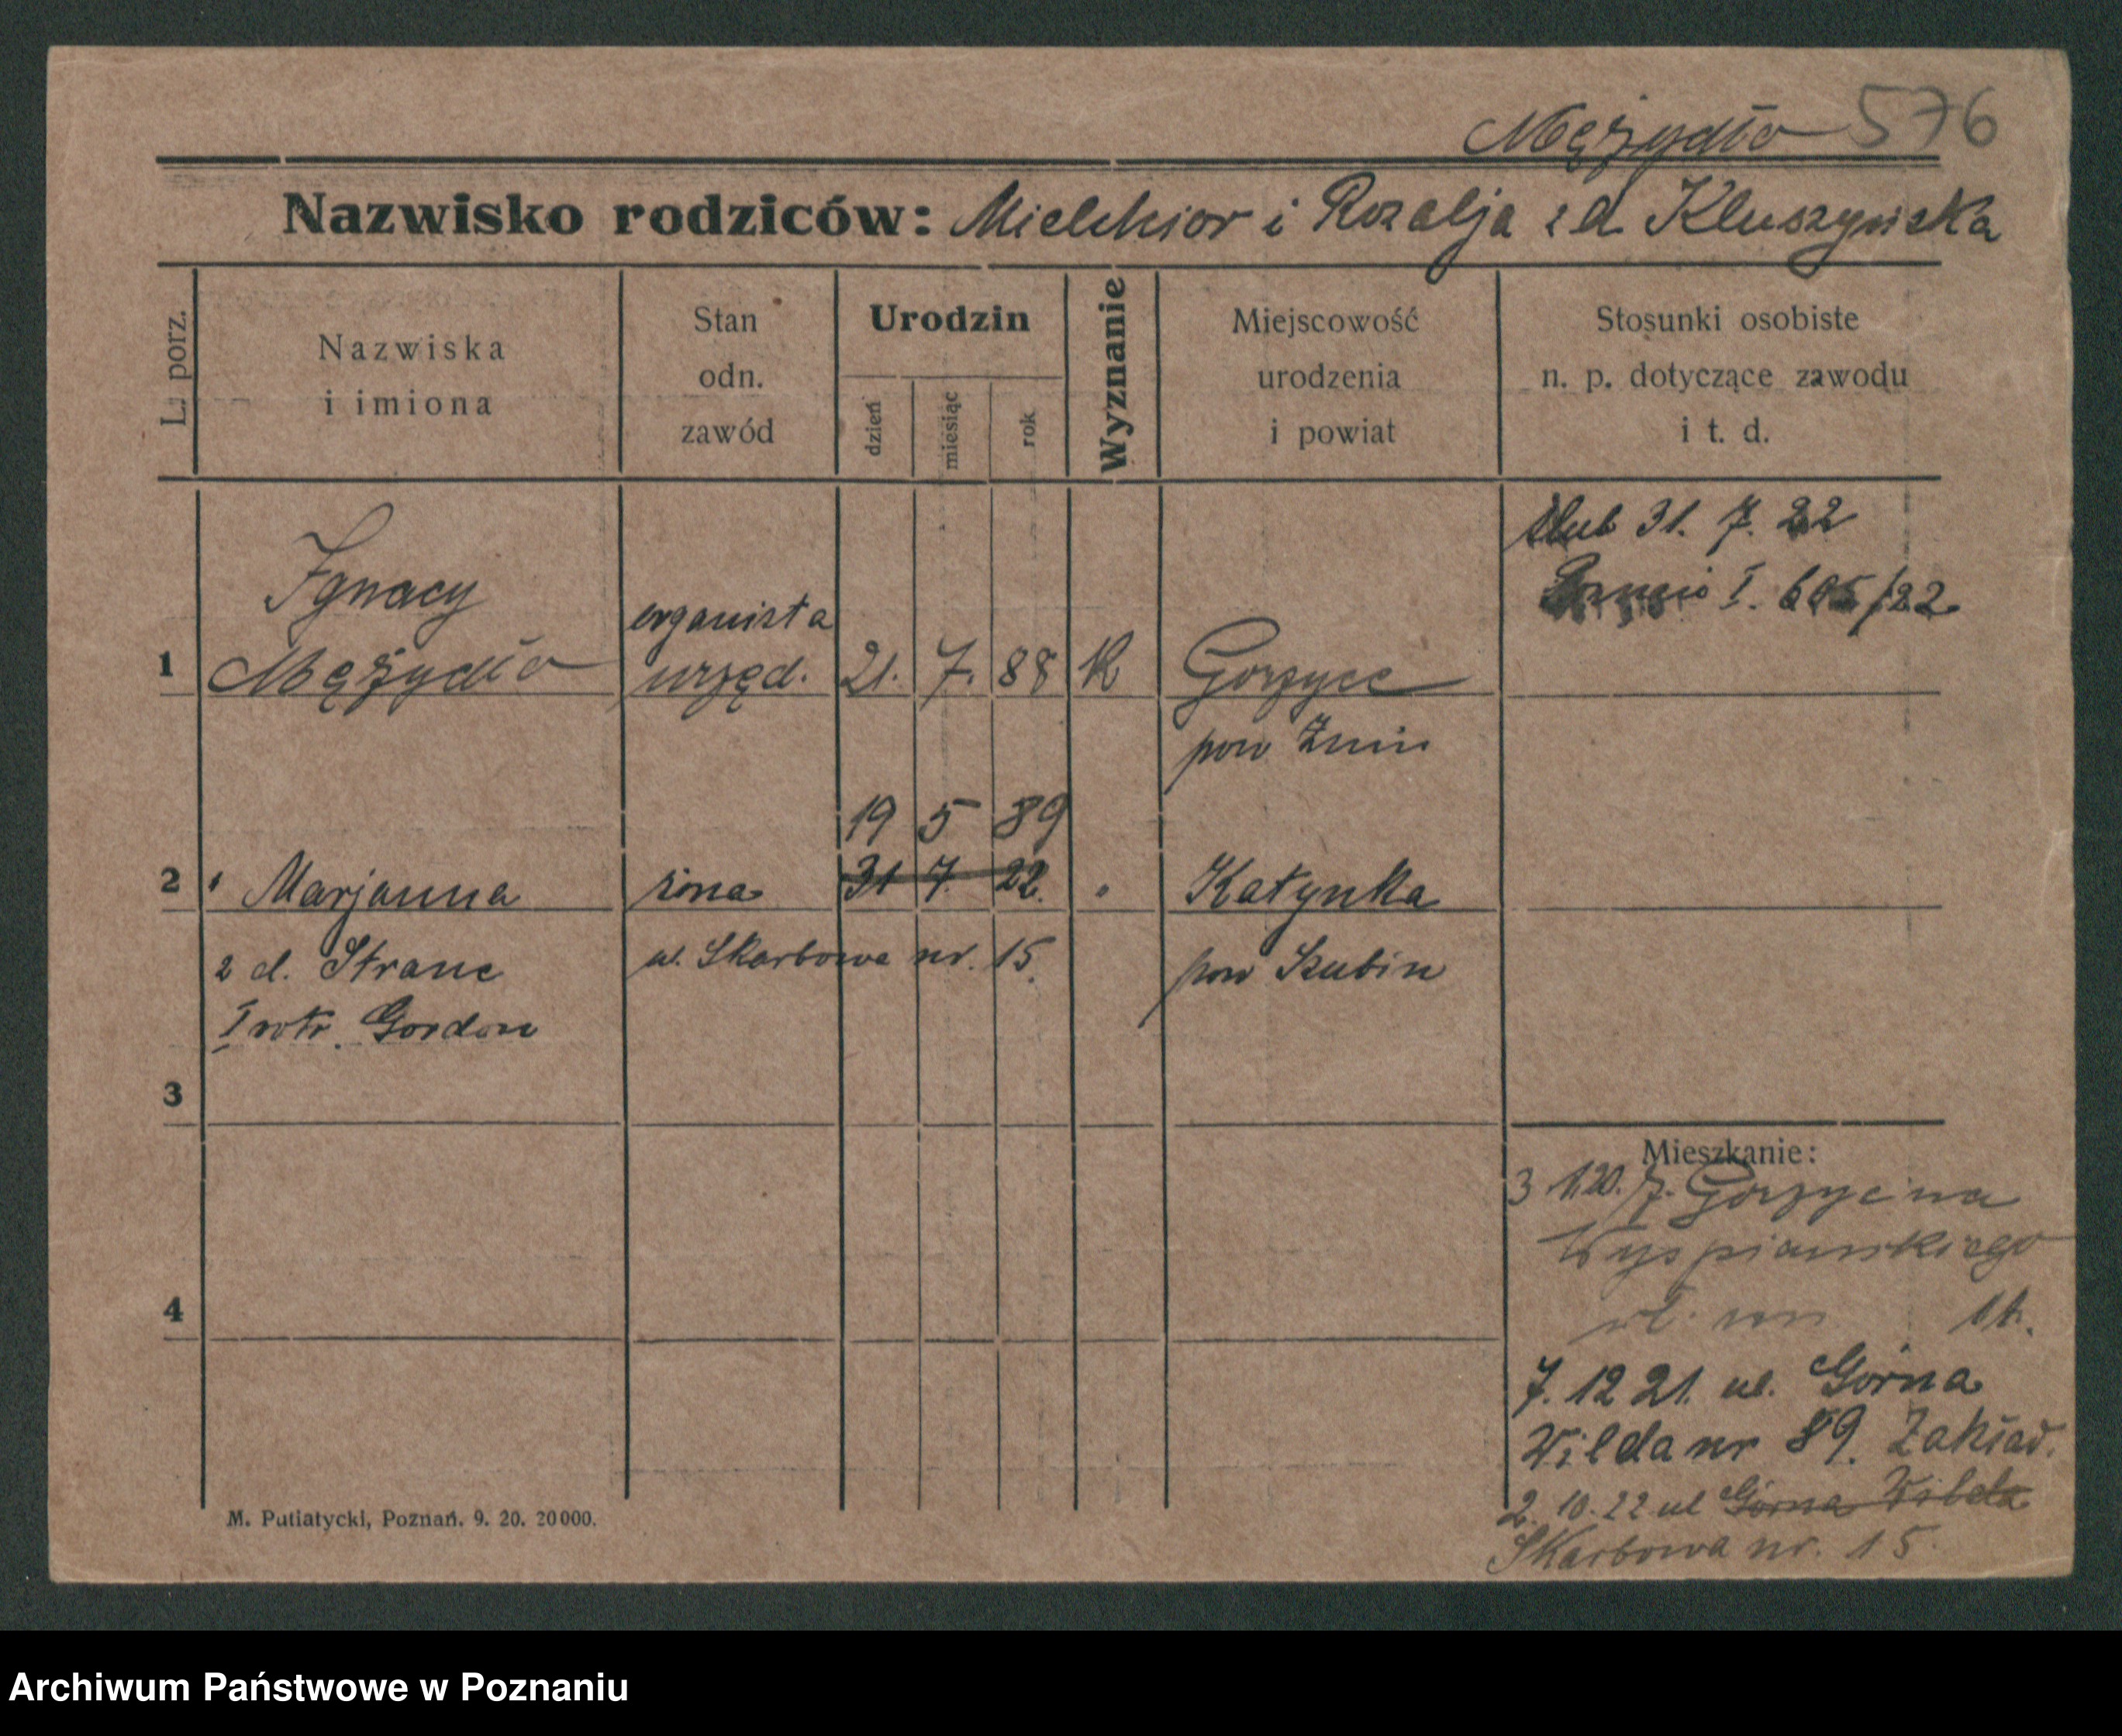 Mężydło 576
Nazwisko rodziców: Mielchior i Rozalja z d. Kluszyńska
L. porz.
Nazwiska
i imiona
Stan
odn.
zawód
Urodzin
dzień
miesiąc
rok
Wyznanie
Miejscowość
urodzenia
i powiat
Stosunki osobiste
n. p. dotyczące zawodu
i t. d.
ślub 31. 7. 22
I. 605/22
Ignacy
organista
1 Mężydło urzęd. 21. 7. 88 K Gorzyce
pow Żnin
19 5 89
2 Marjanna żona 31 7. 22. " Katynka
z d. Strane ul. Skarbowa nr. 15. pow Szubin
I votr. Gordon
3
Mieszkanie:
3 1.20. z Gorzyc na
Wyspianskiego
4
7. 12 21. ul. Górna
Wilda nr 89. Zakład.
2. 10. 22 ul Górna Wilda
Skarbowa nr. 15
M. Putiatycki, Poznań. 9. 20. 20000.
Archiwum Państwowe w Poznaniu